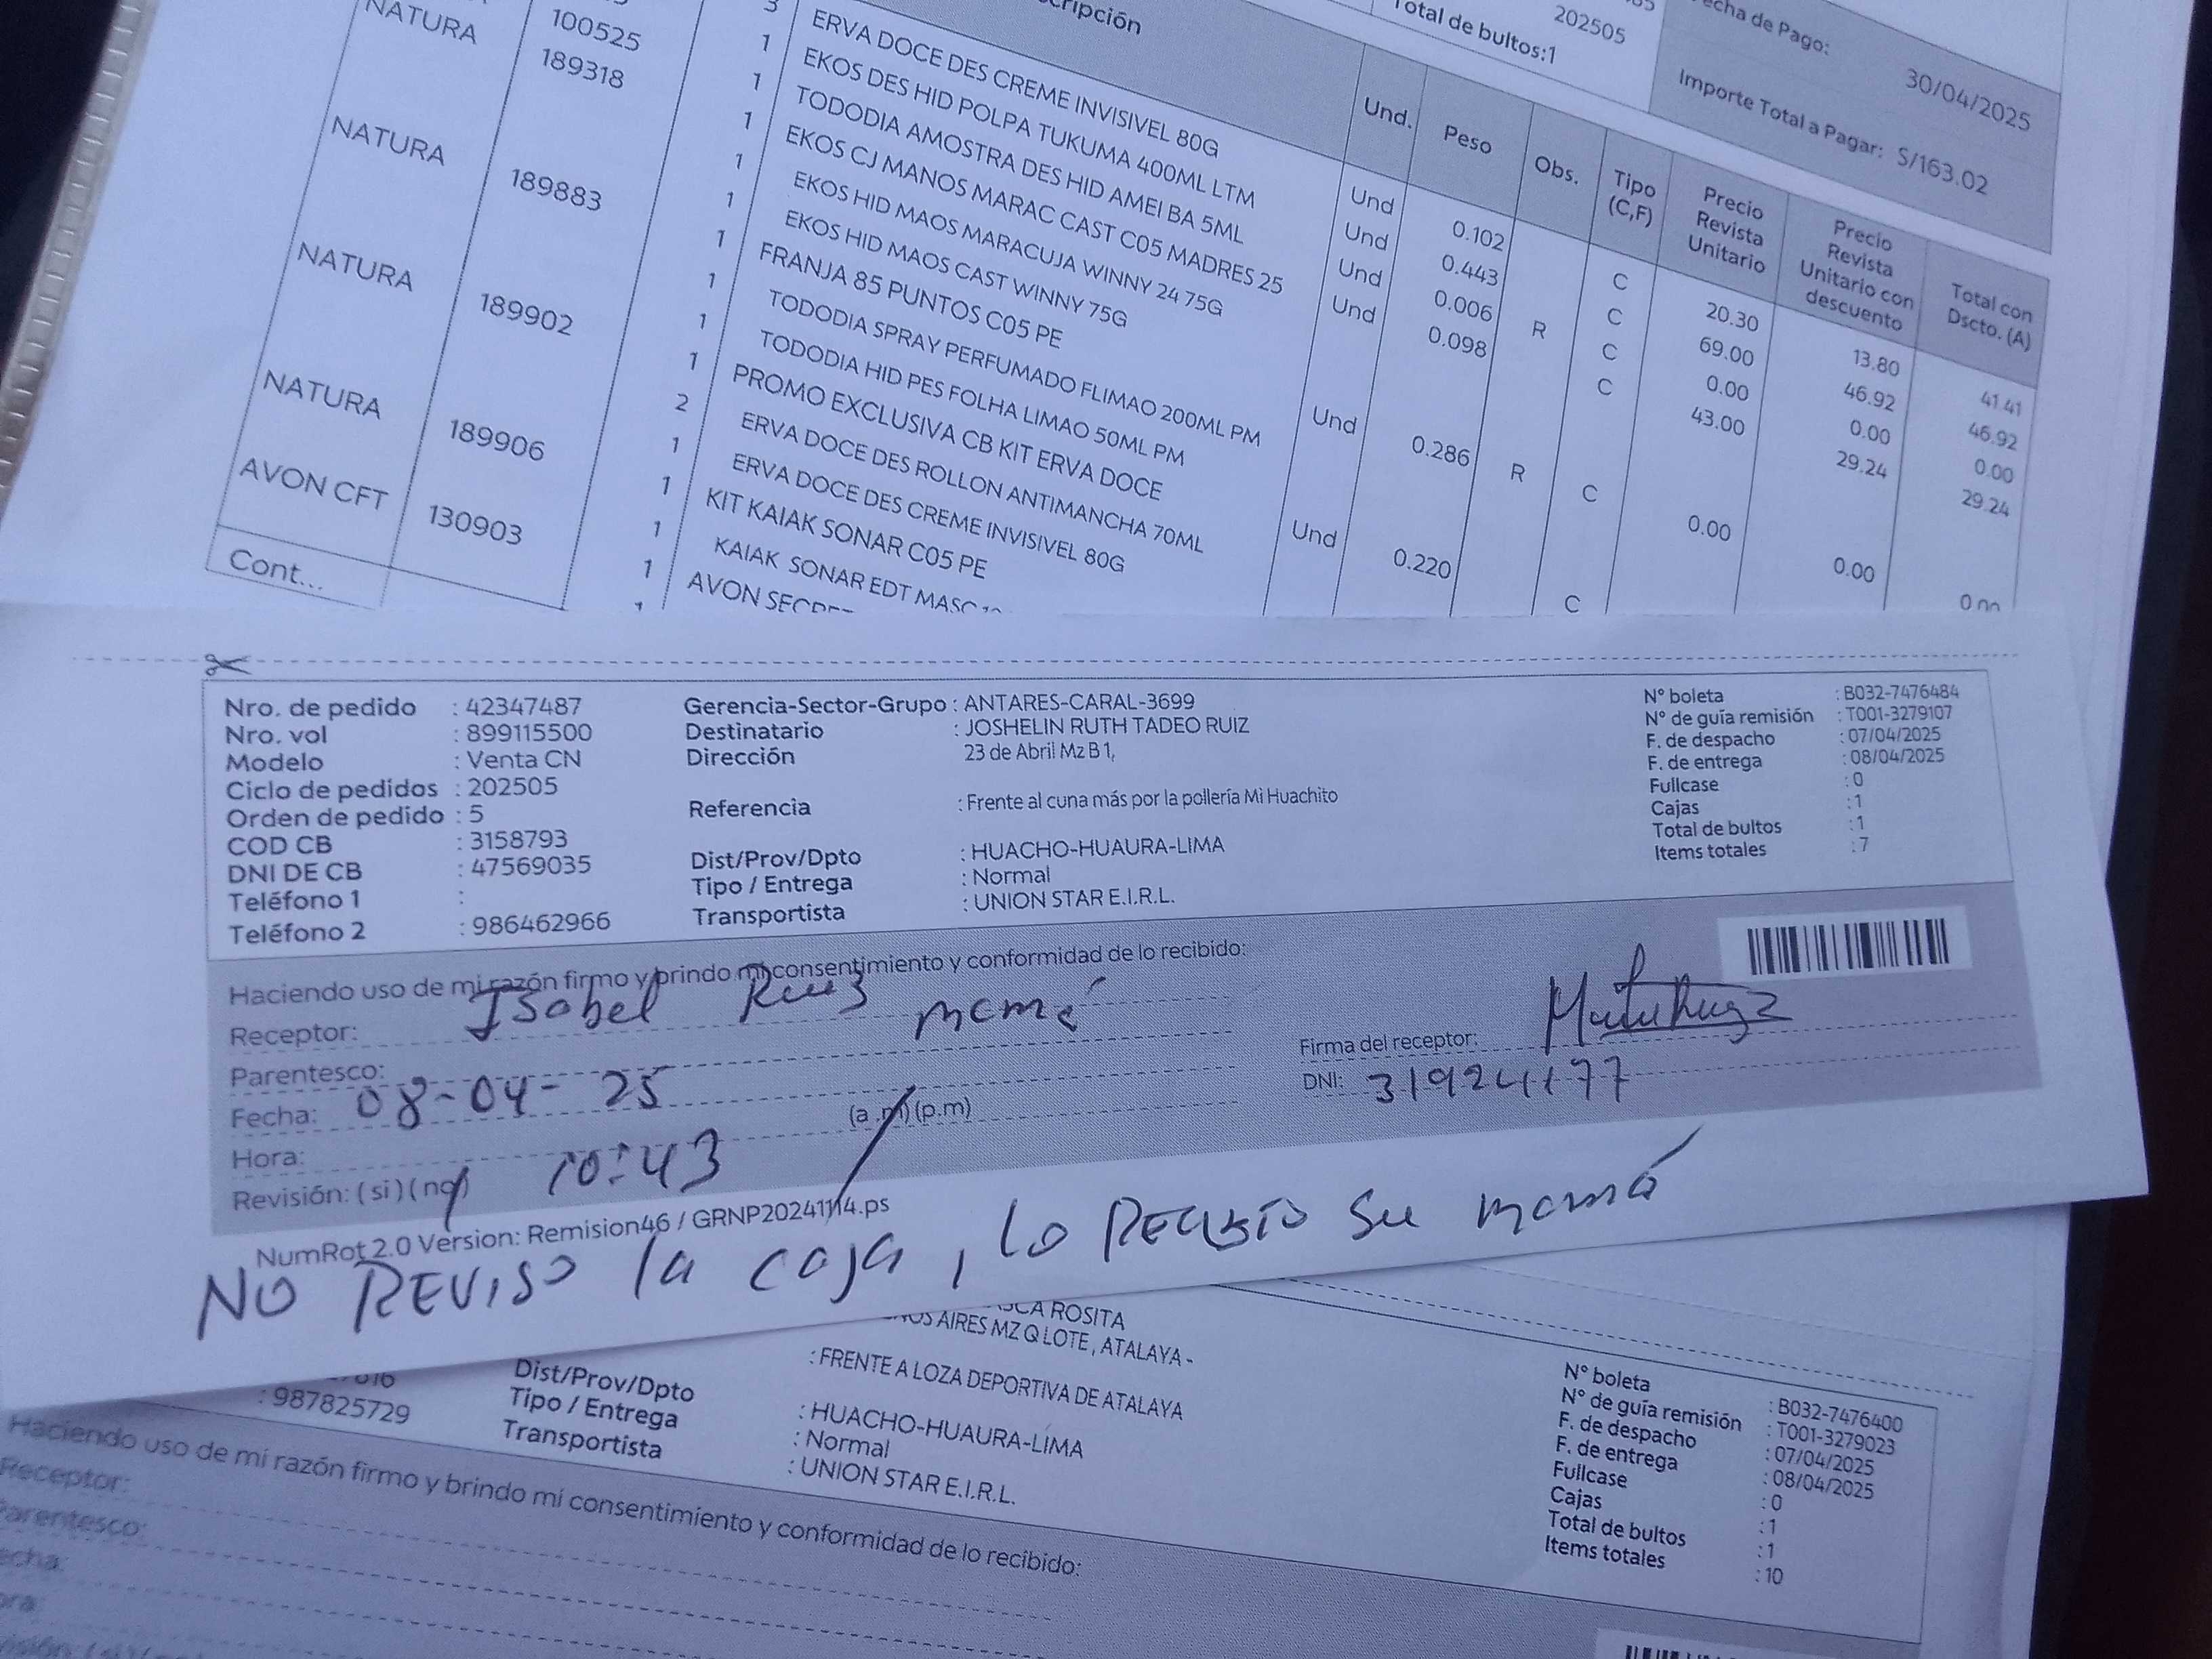 202505
Total de bultos:1
Fecha de Pago:
30/04/2025
Importe Total a Pagar: S/163.02
Und. Peso Obs. Tipo (C,F) Precio Revista Unitario Precio Revista Unitario con descuento Total con Dscto. (A)
NATURA 100525 3 ERVA DOCE DES CREME INVISIVEL 80G Und 0.102 C 20.30 13.80 41.41
189318 1 EKOS DES HID POLPA TUKUMA 400ML LTM Und 0.443 C 69.00 46.92 46.92
1 TODODIA AMOSTRA DES HID AMEI BA 5ML Und 0.006 R C 0.00 0.00 0.00
NATURA 189883 1 EKOS CJ MANOS MARAC CAST C05 MADRES 25 Und 0.098 C 43.00 29.24 29.24
1 EKOS HID MAOS MARACUJA WINNY 24 75G
1 EKOS HID MAOS CAST WINNY 75G
NATURA 189902 1 FRANJA 85 PUNTOS C05 PE Und 0.286 R C 0.00 0.00 0.00
1 TODODIA SPRAY PERFUMADO FLIMAO 200ML PM
1 TODODIA HID PES FOLHA LIMAO 50ML PM
NATURA 189906 1 PROMO EXCLUSIVA CB KIT ERVA DOCE Und 0.220 C
2 ERVA DOCE DES ROLLON ANTIMANCHA 70ML
1 ERVA DOCE DES CREME INVISIVEL 80G
AVON CFT 130903 1 KIT KAIAK SONAR C05 PE
1 KAIAK SONAR EDT MASC
1 AVON
Cont...
Nro. de pedido : 42347487 Gerencia-Sector-Grupo : ANTARES-CARAL-3699 N° boleta : B032-7476484
Nro. vol : 899115500 Destinatario : JOSHELIN RUTH TADEO RUIZ N° de guía remisión : T001-3279107
Modelo : Venta CN Dirección 23 de Abril Mz B 1, F. de despacho : 07/04/2025
Ciclo de pedidos : 202505 F. de entrega : 08/04/2025
Orden de pedido : 5 Referencia : Frente al cuna más por la pollería Mi Huachito Fullcase : 0
COD CB : 3158793 Cajas : 1
DNI DE CB : 47569035 Dist/Prov/Dpto : HUACHO-HUAURA-LIMA Total de bultos : 1
Teléfono 1 : Tipo / Entrega : Normal Items totales : 7
Teléfono 2 : 986462966 Transportista : UNION STAR E.I.R.L.
Haciendo uso de mi razón firmo y brindo mi consentimiento y conformidad de lo recibido:
Receptor: Isabel Ruiz mamá
Firma del receptor:
Parentesco:
DNI:
Fecha: 08-04-25
(a.m) (p.m)
Hora: 10:43
Revisión: (si) (no)
NumRot 2.0 Version: Remision46 / GRNP20241114.ps
NO REVISO la caja, lo RECIBIO su mamá
ROSITA
AIRES MZ Q LOTE, ATALAYA -
: FRENTE A LOZA DEPORTIVA DE ATALAYA
: 987825729
Dist/Prov/Dpto : HUACHO-HUAURA-LIMA
Tipo / Entrega : Normal
Transportista : UNION STAR E.I.R.L.
N° boleta : B032-7476400
N° de guía remisión : T001-3279023
F. de despacho : 07/04/2025
F. de entrega : 08/04/2025
Fullcase : 0
Cajas : 1
Total de bultos : 1
Items totales : 10
Haciendo uso de mi razón firmo y brindo mi consentimiento y conformidad de lo recibido:
Receptor:
Parentesco: